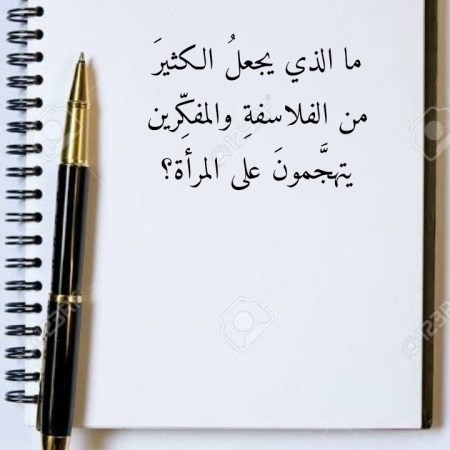 ما الذي يجعلُ الكثيرَ
من الفلاسفةِ والمفكِّرين
يتهجَّمونَ على المرأة؟